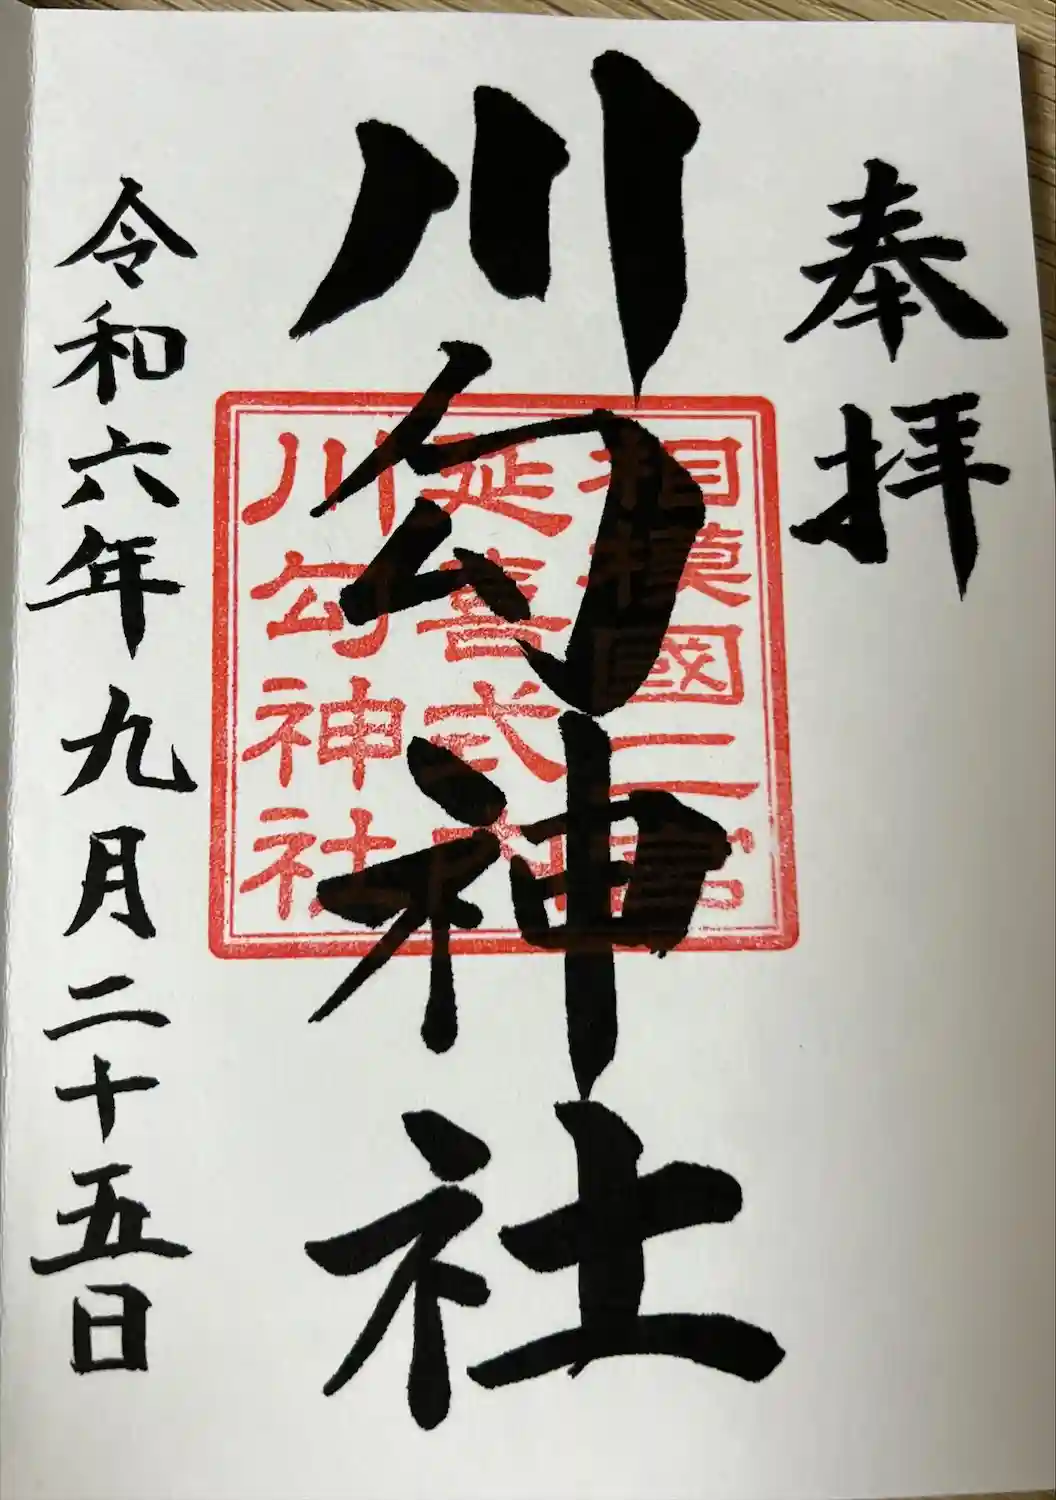 奉拝
川勾神社
相模國二宮
延喜式内
川勾神社
令和六年九月二十五日